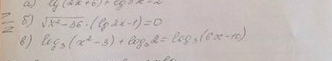 а) lg(2x+6)+lg3x=2
б) √x²-36 · (lg2x-1)=0
в) log₃(x²-3)+log₃2=log₃(6x-10)